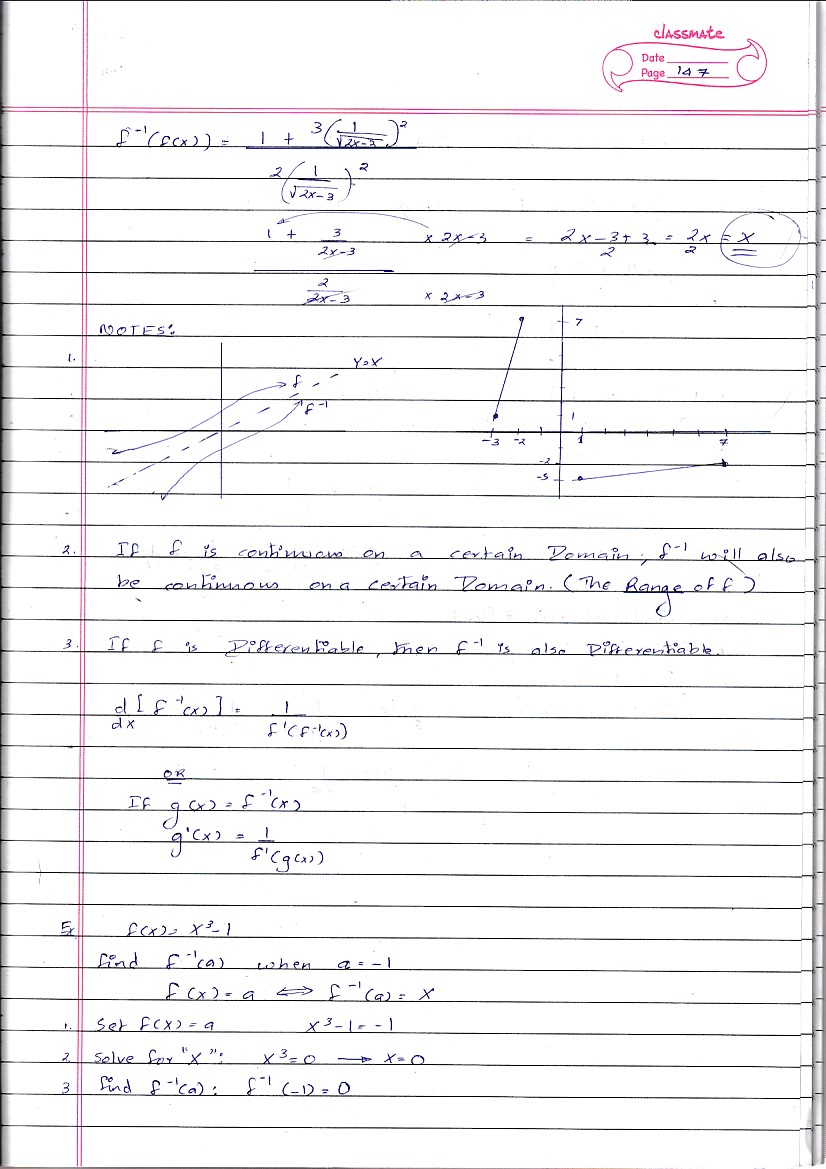 classmate
Date
Page 147
f⁻¹(f(x)) = (1 + 3(1/√(2x-3))²) / (2(1/√(2x-3))²)
(1 + 3/(2x-3)) / (2/(2x-3)) × 2x-3 / × 2x-3 = (2x-3+3)/2 = 2x/2 = x
NOTES:
1.
Y=X
f
f⁻¹
7
1
-3 -2 1 7
-2
-3
2. If f is continuous on a certain Domain, f⁻¹ will also
be continuous on a certain Domain. (The Range of f)
3. If f is Differentiable, then f⁻¹ is also Differentiable.
d/dx [f⁻¹(x)] = 1/f'(f⁻¹(x))
OR
If g(x) = f⁻¹(x)
g'(x) = 1/f'(g(x))
Ex f(x) = x³-1
find f⁻¹(a) when a = -1
f(x) = a ⟺ f⁻¹(a) = x
1. Set f(x) = a x³-1 = -1
2 Solve for "x": x³=0 → x=0
3 find f⁻¹(a): f⁻¹(-1) = 0